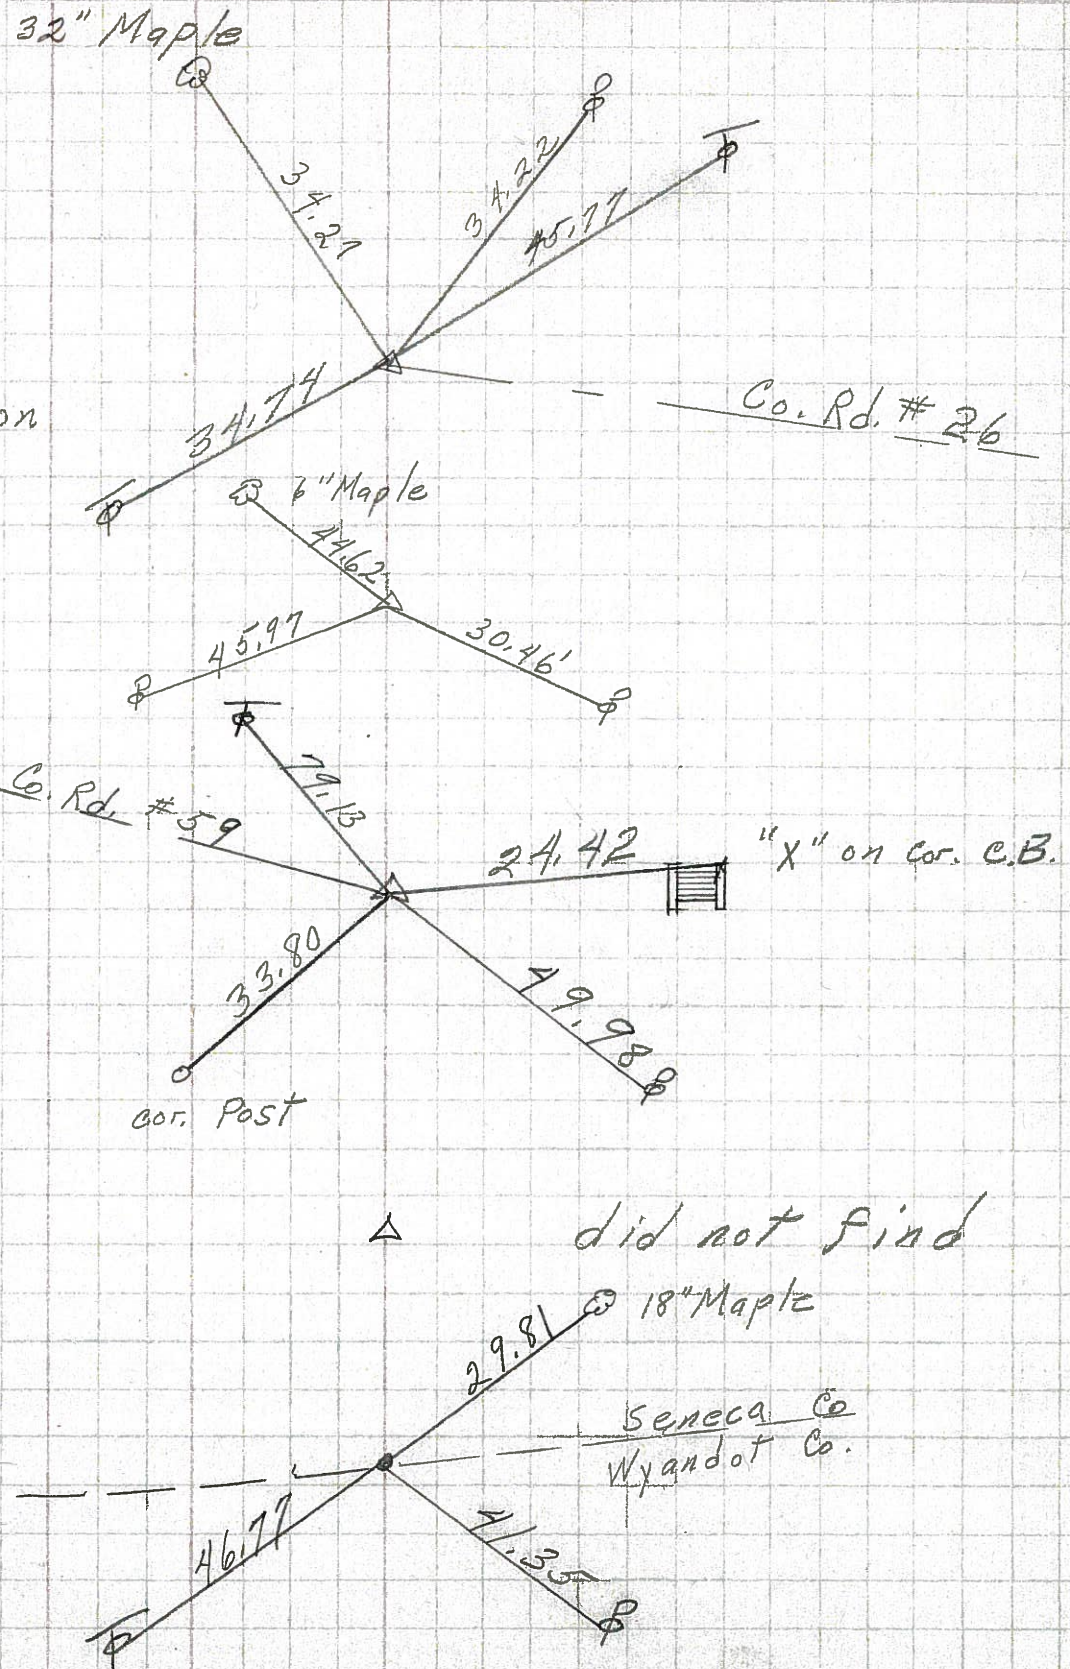 32" Maple
34.27
34.22
45.77
34.74
on
Co. Rd. # 26
6" Maple
44.62
45.97
30.46'
79.13
Co. Rd. #59
24.42
"X" on cor. C.B.
33.80
49.98
cor. Post
did not find
29.81
18" Maple
Seneca Co
Wyandot Co.
46.77
41.35